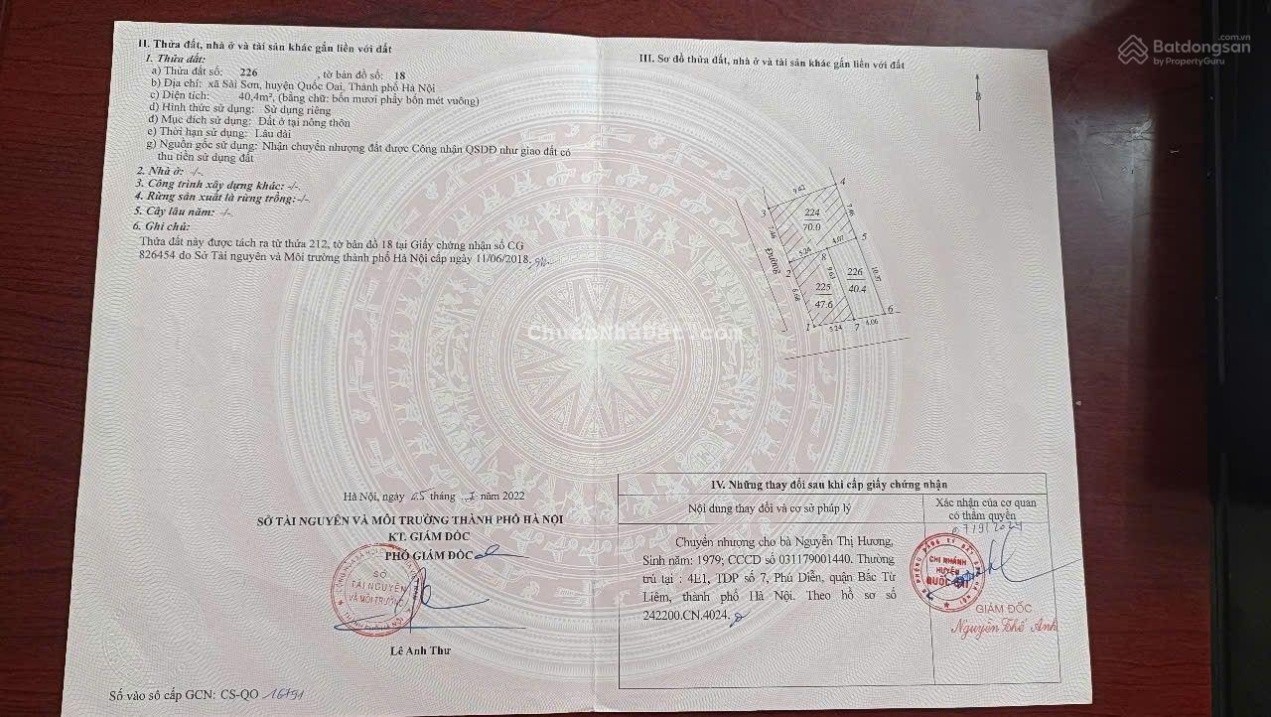 II. Thửa đất, nhà ở và tài sản khác gắn liền với đất
1. Thửa đất:
a) Thửa đất số: 226 , tờ bản đồ số: 18
b) Địa chỉ: xã Sài Sơn, huyện Quốc Oai, Thành phố Hà Nội
c) Diện tích: 40,4m², (bằng chữ: bốn mươi phẩy bốn mét vuông)
d) Hình thức sử dụng: Sử dụng riêng
đ) Mục đích sử dụng: Đất ở tại nông thôn
e) Thời hạn sử dụng: Lâu dài
g) Nguồn gốc sử dụng: Nhận chuyển nhượng đất được Công nhận QSDĐ như giao đất có
thu tiền sử dụng đất
2. Nhà ở: -/-.
3. Công trình xây dựng khác: -/-.
4. Rừng sản xuất là rừng trồng:-/-.
5. Cây lâu năm: -/-.
6. Ghi chú:
Thửa đất này được tách ra từ thửa 212, tờ bản đồ 18 tại Giấy chứng nhận số CG
826454 do Sở Tài nguyên và Môi trường thành phố Hà Nội cấp ngày 11/06/2018.
Hà Nội, ngày tháng năm 2022
SỞ TÀI NGUYÊN VÀ MÔI TRƯỜNG THÀNH PHỐ HÀ NỘI
KT. GIÁM ĐỐC
PHÓ GIÁM ĐỐC
SỞ
TÀI NGUYÊN
VÀ MÔI TRƯỜNG
Lê Anh Thư
Số vào sổ cấp GCN: CS-QO
III. Sơ đồ thửa đất, nhà ở và tài sản khác gắn liền với đất
B
9.62
4
3
224
70.0
7.46
Đường
5.26
4.07
5
2
8
226
40.4
10.37
9.63
225
47.6
6
1
5.24
7
4.06
IV. Những thay đổi sau khi cấp giấy chứng nhận
Nội dung thay đổi và cơ sở pháp lý
Xác nhận của cơ quan
có thẩm quyền
Chuyển nhượng cho bà Nguyễn Thị Hương,
Sinh năm: 1979; CCCD số 031179001440. Thường
trú tại : 4E1, TDP số 7, Phú Diễn, quận Bắc Từ
Liêm, thành phố Hà Nội. Theo hồ sơ số
242200.CN.4024.
CHI NHÁNH
HUYỆN
QUỐC OAI
GIÁM ĐỐC
Nguyễn Thế Anh
ChuanNhaDat.com
Batdongsan.com.vn
by PropertyGuru